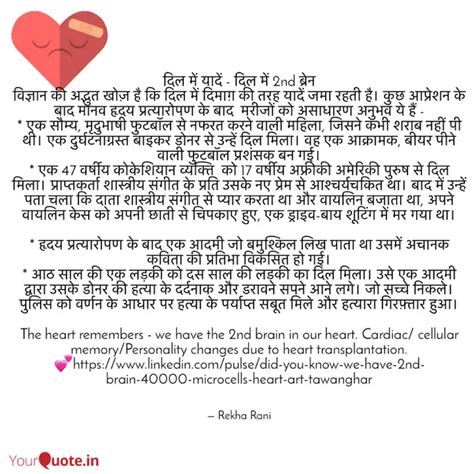 दिल में यादें - दिल में 2nd ब्रेन
विज्ञान की अद्भुत खोज़ है कि दिल में दिमाग़ की तरह यादें जमा रहती है। कुछ आप्रेशन के
बाद मानव हृदय प्रत्यारोपण के बाद मरीजों को असाधारण अनुभव ये हैं -
* एक सौम्य, मृदुभाषी फुटबॉल से नफरत करने वाली महिला, जिसने कभी शराब नहीं पी
थी। एक दुर्घटनाग्रस्त बाइकर डोनर से उन्हें दिल मिला। वह एक आक्रामक, बीयर पीने
वाली फुटबॉल प्रशंसक बन गई।
* एक 47 वर्षीय कोकेशियान व्यक्ति को 17 वर्षीय अफ्रीकी अमेरिकी पुरुष से दिल
मिला। प्राप्तकर्ता शास्त्रीय संगीत के प्रति उसके नए प्रेम से आश्चर्यचकित था। बाद में उन्हें
पता चला कि दाता शास्त्रीय संगीत से प्यार करता था और वायलिन बजाता था, अपने
वायलिन केस को अपनी छाती से चिपकाए हुए, एक ड्राइव-बाय शूटिंग में मर गया था।
* हृदय प्रत्यारोपण के बाद एक आदमी जो बमुश्किल लिख पाता था उसमें अचानक
कविता की प्रतिभा विकसित हो गई।
* आठ साल की एक लड़की को दस साल की लड़की का दिल मिला। उसे एक आदमी
द्वारा उसके डोनर की हत्या के दर्दनाक और डरावने सपने आने लगे। जो सच्चे निकले।
पुलिस को वर्णन के आधार पर हत्या के पर्याप्त सबूत मिले और हत्यारा गिरफ़्तार हुआ।
The heart remembers - we have the 2nd brain in our heart. Cardiac/ cellular
memory/Personality changes due to heart transplantation.
💕https://www.linkedin.com/pulse/did-you-know-we-have-2nd-
brain-40000-microcells-heart-art-tawanghar
– Rekha Rani
YourQuote.in